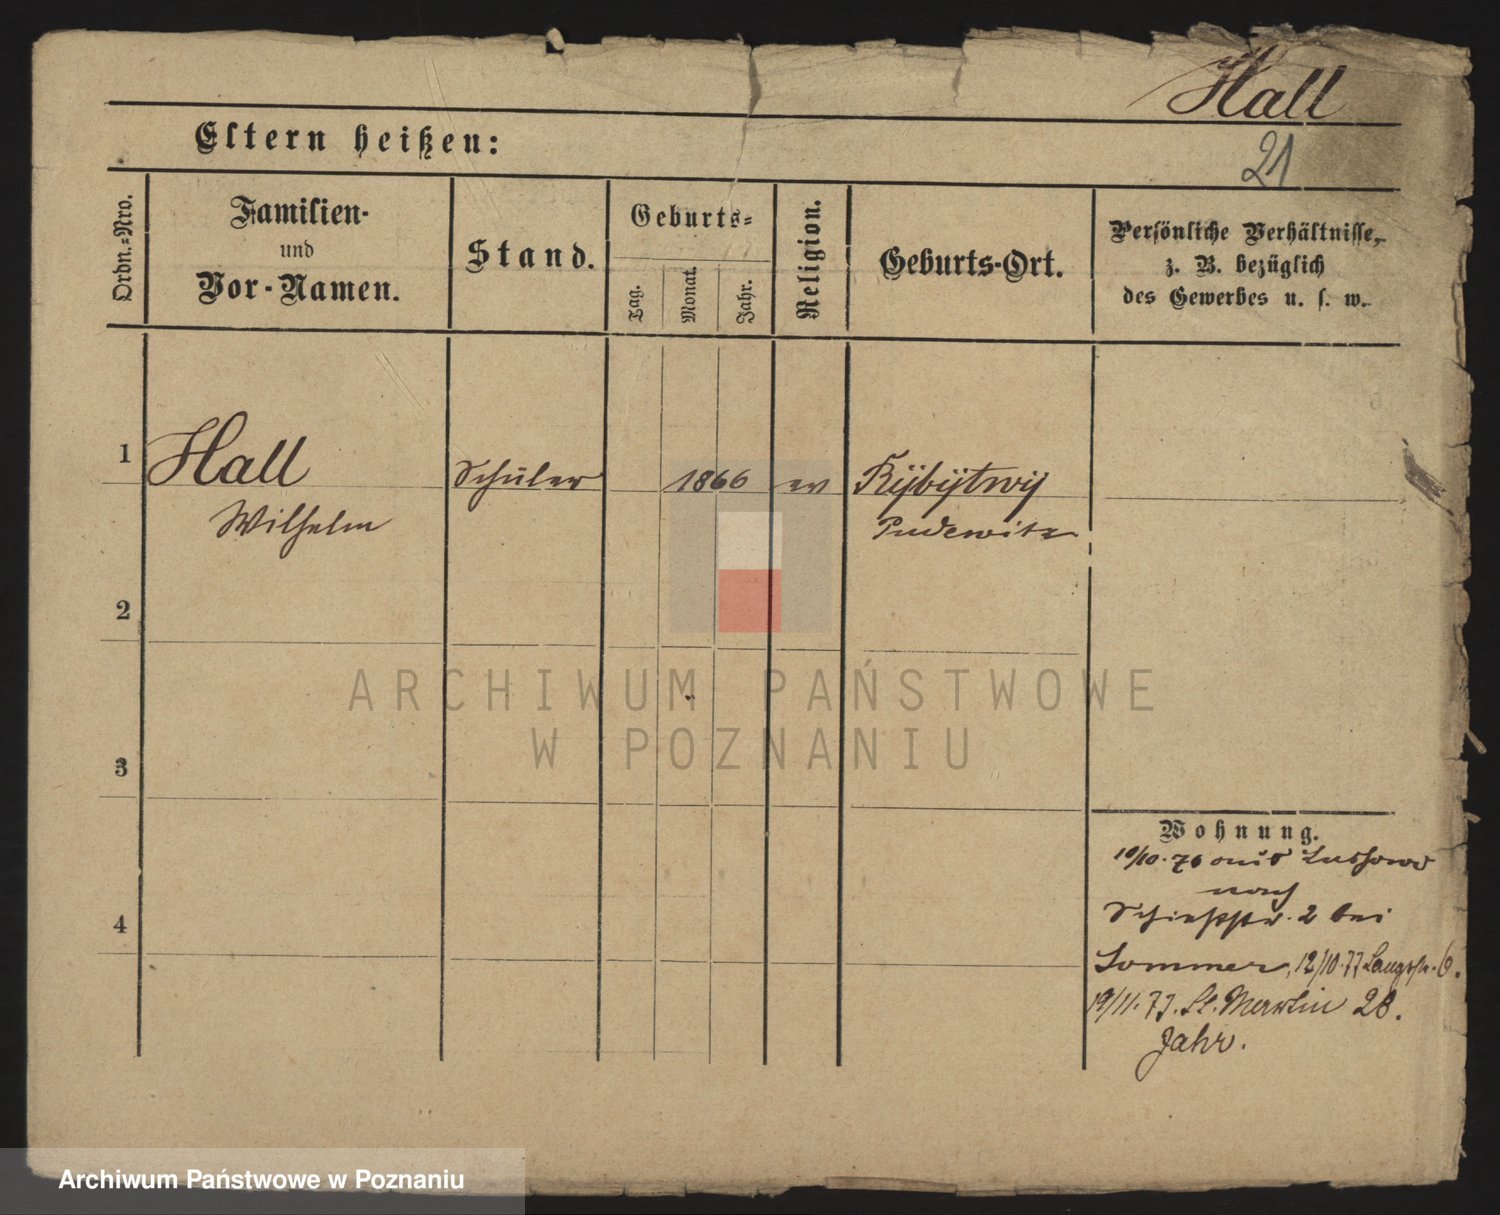 Hall
Eltern heißen:
21
Ordn.-Nro.
Familien-
und
Vor-Namen.
Stand.
Geburts-
Tag.
Monat.
Jahr.
Religion.
Geburts-Ort.
Persönliche Verhältnisse,
z. B. bezüglich
des Gewerbes u. s. w.
1
Hall
Schüler
1866
ev
Rÿbÿtwÿ
Wilhelm
Pudewitz
2
3
4
Wohnung.
10/10. 76 aus
nach
Schießstr. 2 bei
Sommer, 12/10. 77 Langestr. 6.
19/11. 77. St. Martin 28.
Jahr.
ARCHIWUM PAŃSTWOWE
W POZNANIU
Archiwum Państwowe w Poznaniu